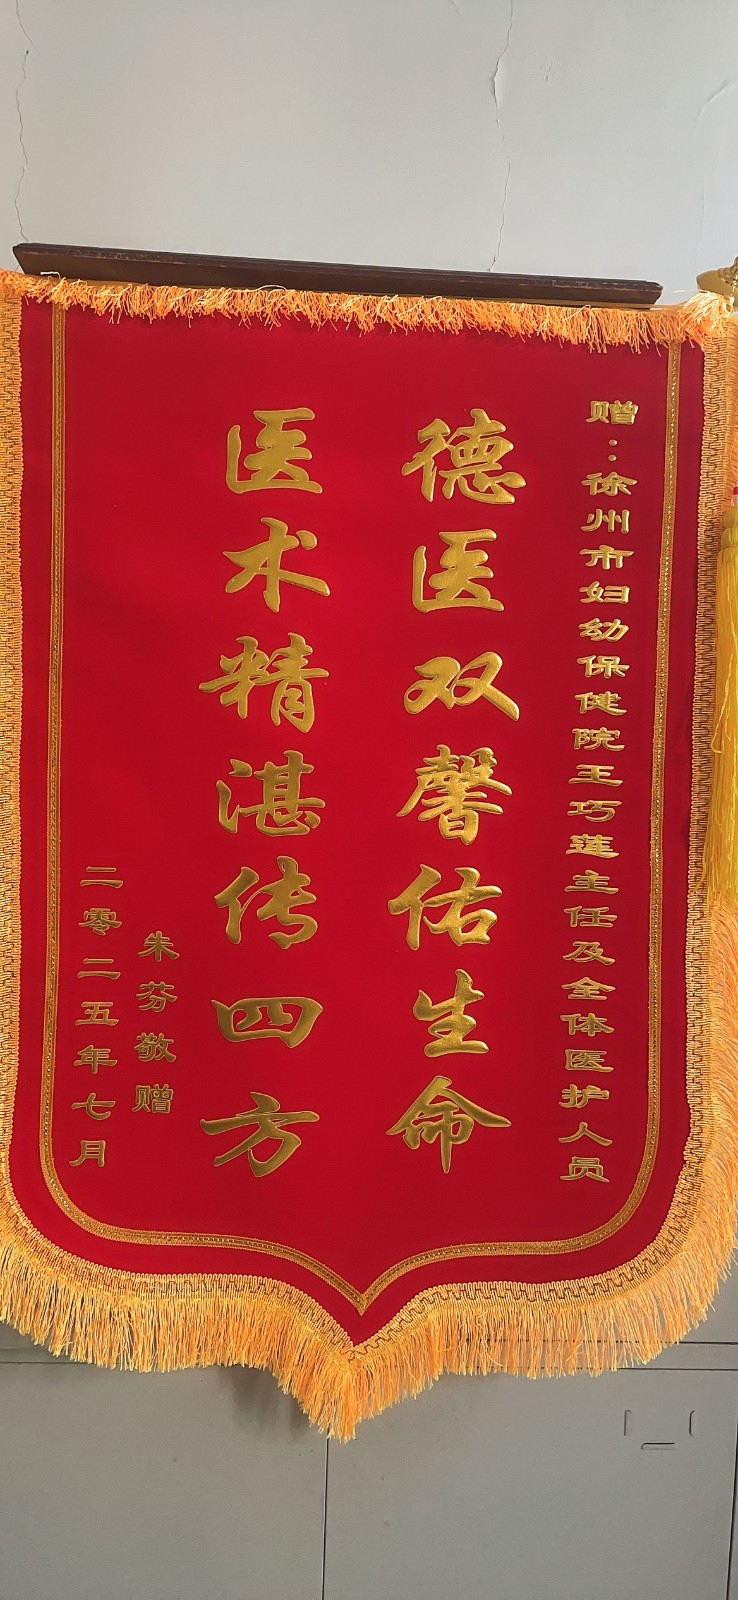 赠：徐州市妇幼保健院王巧莲主任及全体医护人员
德医双馨佑生命
医术精湛传四方
朱芬敬赠
二零二五年七月